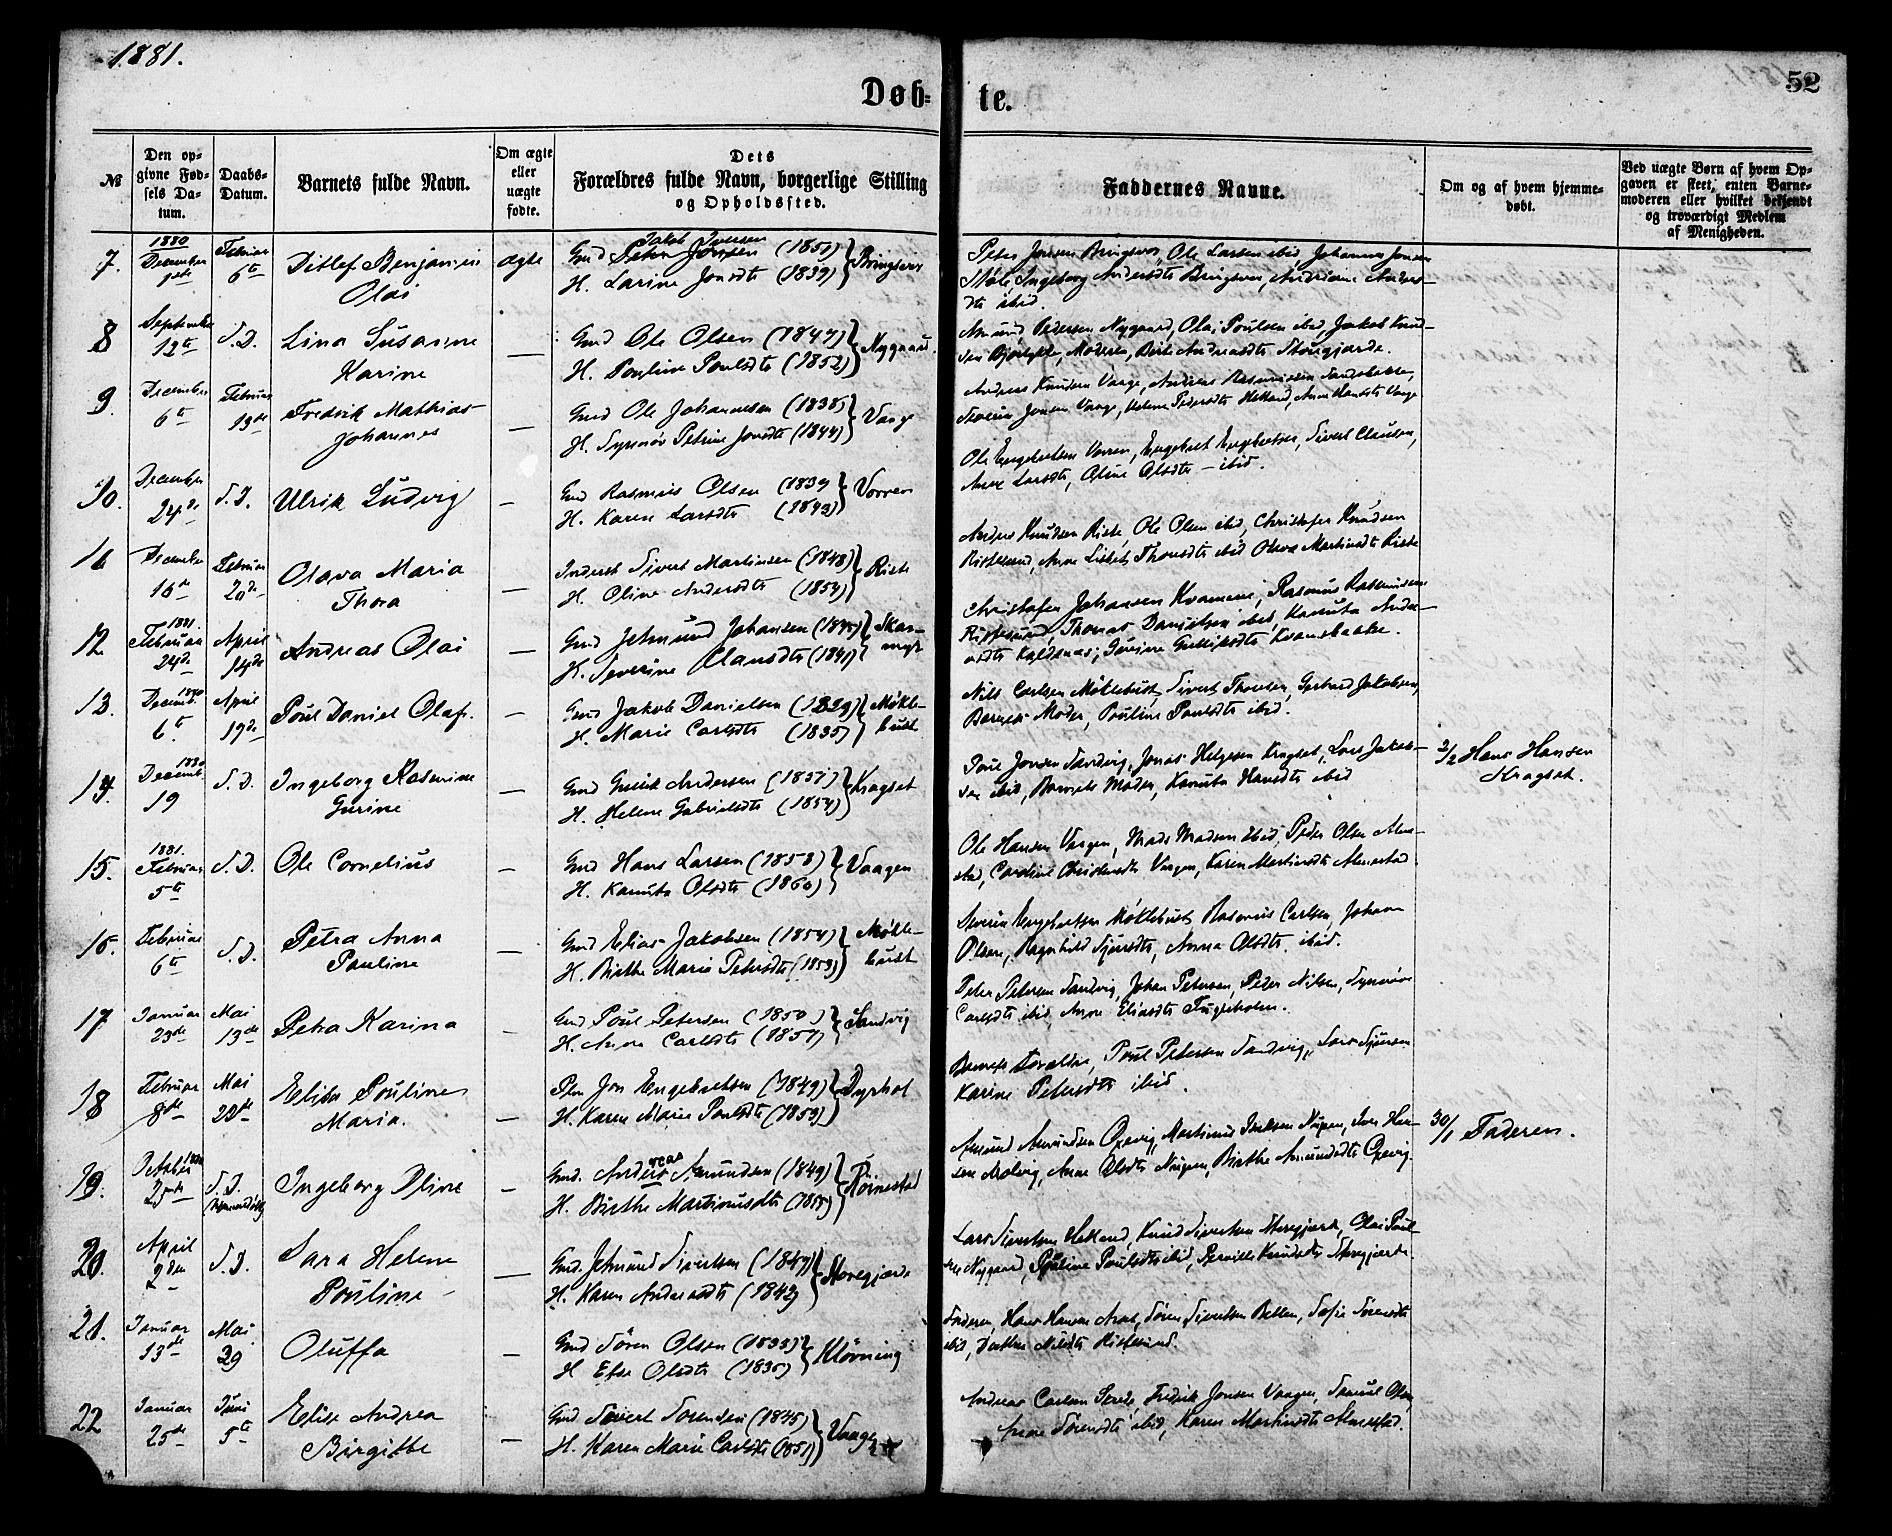 1881.
Døb-
te.
52
№
Den op-
givne Fød-
sels Da-
tum.
Daabs-
Datum.
Barnets fulde Navn.
Om ægte
eller
uægte
fødte.
Dets
Forældres fulde Navn, borgerlige Stilling
og Opholdssted.
Faddernes Navne.
Om og af hvem hjemme-
døbt.
Ved uægte Børn af hvem Op-
gaven er skeet, enten Barne-
moderen eller hvilket bekjendt
og troværdigt Medlem
af Menigheden.
7.
1880
December
Februar
6te
Ditlef Benjamin
Olai
ægte
Jakob Iversen
Gmd Peter Jonsen (1851)
H. Larine Jonsdtr (1839)
Bringsvor
Peter Jonsen Bringsvor, Ole Larsen ibid, Johannes Jonsen
Støle, Ingeborg Andersdtr Bringsvor, Andriane Anders-
dtr ibid
8
September
12te
S.D.
Lina Susanne
Karine
—
Gmd Ole Olsen (1847)
H. Pouline Poulsdtr (1852)
Nygaard.
Amund Pedersen Nygaard, Olai Poulsen ibid, Jakob Knud-
sen, Moderen, Birte Andreasdtr Storegjærde.
9.
December
6te
Februar
13de
Fredrik Mathias
Johannes
—
Gmd Ole Johannesen (1838)
H. Synnøv Petrine Jonsdtr (1844)
Vaage
Andreas Knudsen Vaage, Andreas Rasmussen Sandsbakke,
Severin Jonsen Vaage, Helene Pedersdtr Hekland, Anne Hansdtr Vaage
10.
December
24de
S.D.
Ulrik Ludvig
—
Gmd Rasmus Olsen (1839
H. Karen Larsdtr (1843)
Vorren
Ole Engebretsen Vorren, Engebret Engebretsen, Sivert Clausen,
Anne Larsdtr, Oline Olsdtr — ibid.
11
December
16de
Februar
20de
Olava Maria
Thora
—
Inderst Sivert Martinsen (1848)
H. Oline Andersdtr (1854)
Riste
Anders Knudsen Riste, Ole Olsen ibid, Christofer Knudsen
Ristesund, Anne Lisbet Thoresdtr ibid Olava Martinsdtr Riste
12
1881.
Februar
24de
April
14de
Andreas Olai
—
Gmd Jetmund Johansen (1845)
H. Severine Clausdtr (1841)
Skor-
myr
Christofer Johansen Kvamme, Rasmus Rasmussen
Ristesund, Thomas Danielsen ibid, Kanuta Ander-
sdtr Koldsnes, Severine Gulliksdtr Kvamsbakke.
13.
1880
Decemb.
6te
April
19de
Poul Daniel Olaf.
—
Gmd Jakob Danielsen (1829)
H. Marie Carlsdtr (1835)
Møkle-
bust
Nils Carlsen Møklebust, Sivert Thoresen, Gerhard Jakobsen,
Barnets Moder, Pouline Poulsdtr ibid.
14.
1880
Decemb.
19
S.D.
Ingeborg Rasmine
Gurine
—
Gmd Gullik Andersen (1851)
H. Helene Gabrielsdtr (1854)
Kragset
Poul Jonsen Sandvig, Jonas Helgesen Kragset, Lars Jakob-
sen ibid, Barnets Moder, Kanuta Hansdtr ibid
2/2 Hans Hansen
Kragset.
15.
1881.
Februar
5te
S.D.
Ole Cornelius
—
Gmd Hans Larsen (1858)
H. Kanuta Olsdtr (1860)
Vaagen
Ole Hansen Vaagen, Mads Madsen ibid, Peder Olsen Alme-
stad, Caroline Christensdtr Vaagen, Karen Martinsdtr Almestad.
16.
Februar
6te
S.D.
Petra Anna
Pauline
—
Gmd Elias Jakobsen (1854)
H. Birthe Marie Petersdtr (1853)
Møkle-
bust
Severin Engebretsen Møklebust, Rasmus Carlsen, Johan
Olsen, Ragnhild Sjursdtr, Anna Olsdtr ibid.
17
Januar
23de
Mai
13de
Petra Karina
—
Gmd Poul Petersen (1850)
H. Anna Carlsdtr (1857)
Sandvig
Peter Petersen Sandvig, Johan Petersen, Peder Nilsen, Synnøve
Carlsdtr ibid, Anne Eliasdtr Flugeholm.
18
Februar
8de
Mai
22de
Elisa Pouline
Maria.
—
Pln Jon Engebretsen (1849)
H. Karen Marie Poulsdtr (1853)
Dyrhol
Barnets Forældre, Poul Petersen Sandvig, Lars Sjursen
Karine Petersdtr ibid.
19.
1880
October
25de
S.D.
Ingeborg Oline
—
reas
Gmd. Anders Amundsen (1849)
H. Birthe Martinusdtr (1855)
Røinestad
Amund Amundsen Gjervig, Martinus Iversen Nupen, Iver Han-
sen Molvig, Anne Olsdtr Nupen, Birthe Amundsdtr Gjervig.
30/1 Faderen.
20.
April
2den
S.D.
Sara Helene
Pouline
—
Gmd. Jetmund Sivertsen (1847)
H. Karen Andreasdtr (1842)
Storegjærde
Lars Sivertsen Hekland, Knud Sivertsen Storegjærde, Olai Poul-
sen Nygaard, Pouline Poulsdtr ibid, Pernille Knudsdtr Storegjærde.
21.
Januar
13de
Mai
29
Oluffa
—
Gmd Sören Olsen (1833)
H Else Olsdtr (1835)
Kløvning
Faderen, Hans Hansen Aras, Sören Sivertsen Betten, Sofie Sörensdtr
ibid, Dorthe Nilsdtr Ristesund.
22
Januar
25de
Juni
5te
Elise Andrea
Birgitte
—
Gmd Sivert Sorensen (1845)
H. Karen Marie Carlsdtr (1851)
Vaagen
Andreas Carlsen Sevde, Fredrik Jonsen Vaagen, Samuel Olsen,
Anne Sörensdtr ibid, Karen Martinsdtr Almestad.